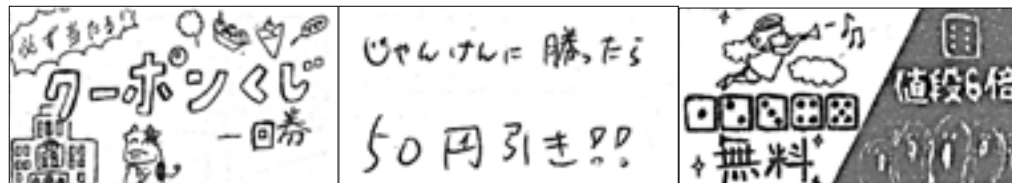 必ず当たる!
クーポンくじ
一回券
じゃんけんに勝ったら
50円引き!!
無料
値段6倍